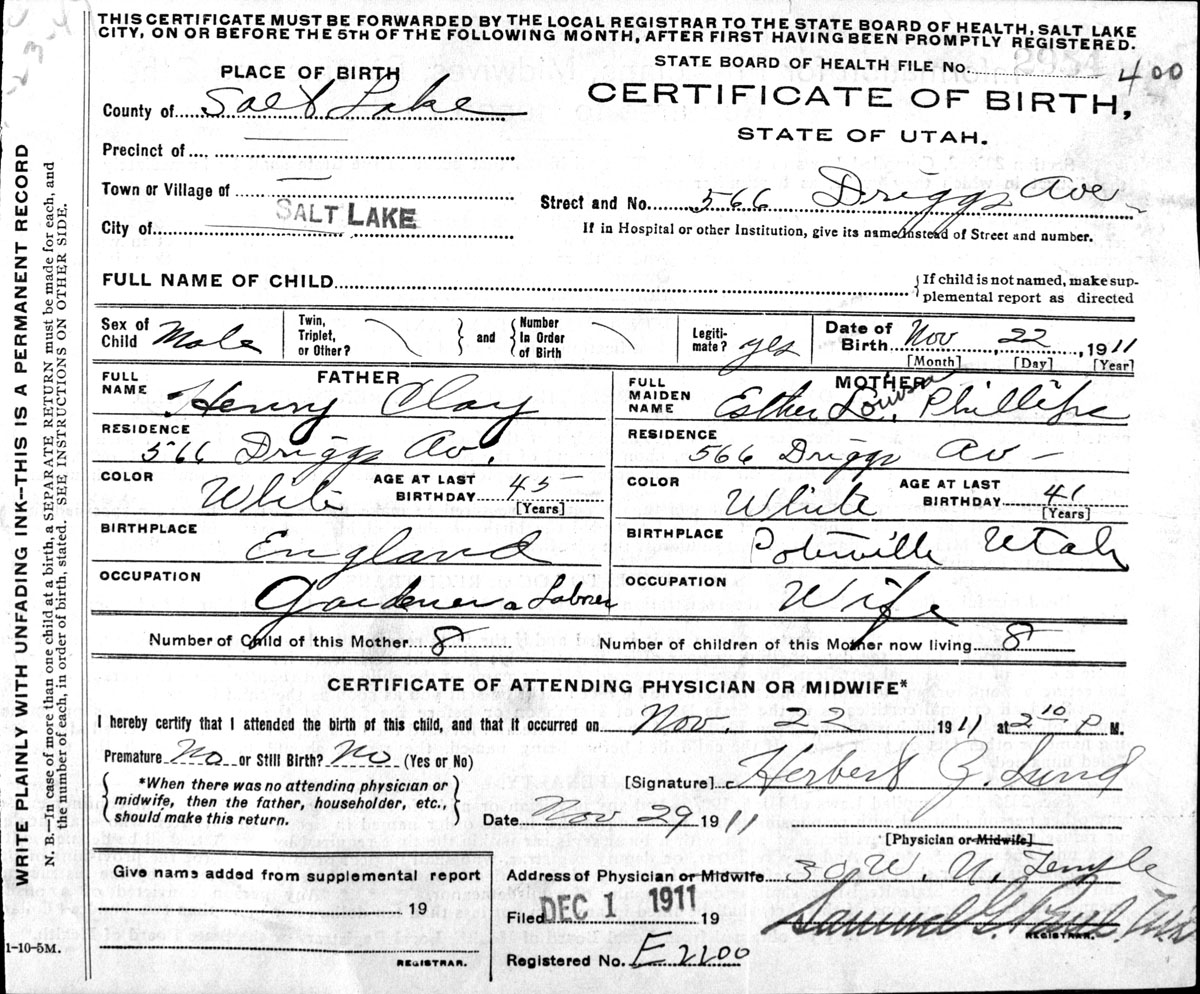 THIS CERTIFICATE MUST BE FORWARDED BY THE LOCAL REGISTRAR TO THE STATE BOARD OF HEALTH, SALT LAKE
CITY, ON OR BEFORE THE 5TH OF THE FOLLOWING MONTH, AFTER FIRST HAVING BEEN PROMPTLY REGISTERED.
STATE BOARD OF HEALTH FILE No. 400
PLACE OF BIRTH
CERTIFICATE OF BIRTH,
County of Salt Lake
STATE OF UTAH.
Precinct of
Town or Village of
Street and No. 566 Driggs Ave
City of SALT LAKE
If in Hospital or other Institution, give its name instead of Street and number.
FULL NAME OF CHILD
If child is not named, make sup-
plemental report as directed
Sex of Child Male Twin, Triplet, or Other? and Number In Order of Birth Legiti-mate? yes Date of Birth Nov 22, 1911
[Month] [Day] [Year]
FATHER MOTHER
FULL NAME Henry Clay FULL MAIDEN NAME Esther Louisa Phillips
RESIDENCE 566 Driggs Av. RESIDENCE 566 Driggs Av
COLOR White AGE AT LAST BIRTHDAY 45 [Years] COLOR White AGE AT LAST BIRTHDAY 41 [Years]
BIRTHPLACE England BIRTHPLACE Utah
OCCUPATION Gardener a Laborer OCCUPATION Wife
Number of Child of this Mother 8 Number of children of this Mother now living 8
CERTIFICATE OF ATTENDING PHYSICIAN OR MIDWIFE*
I hereby certify that I attended the birth of this child, and that it occurred on Nov. 22 1911 at 2 10 P M.
Premature No or Still Birth? No (Yes or No)
[Signature] Herbert Z. Lund
*When there was no attending physician or
midwife, then the father, householder, etc.,
should make this return.
Date Nov 29 1911
[Physician or Midwife]
Give name added from supplemental report
Address of Physician or Midwife 30 W. N. Temple
19
Filed DEC 1 1911 19
Samuel G. Paul
REGISTRAR.
Registered No. E2200
REGISTRAR.
1-10-5M.
WRITE PLAINLY WITH UNFADING INK—THIS IS A PERMANENT RECORD
N. B.—In case of more than one child at a birth, a SEPARATE RETURN must be made for each, and
the number of each, in order of birth, stated. SEE INSTRUCTIONS ON OTHER SIDE.